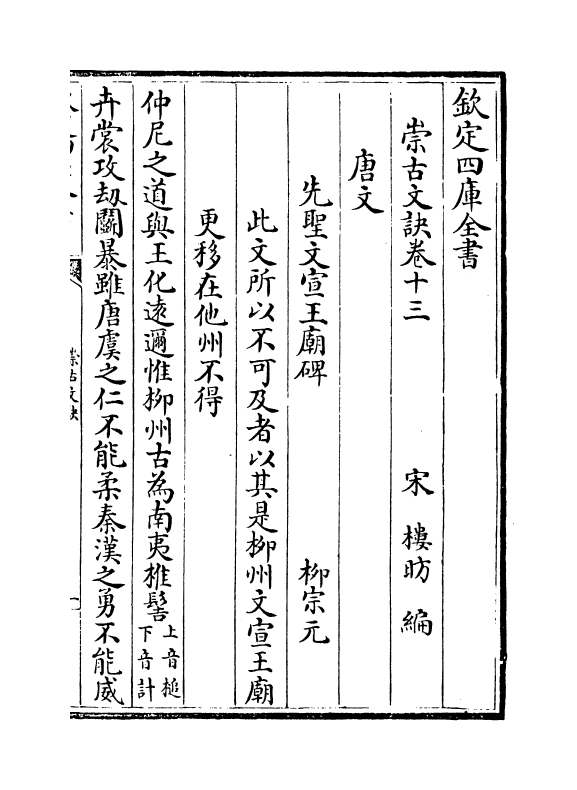 欽定四庫全書
崇古文訣卷十三
宋 樓昉 編
唐文
先聖文宣王廟碑
柳宗元
此文所以不可及者以其是柳州文宣王廟
更移在他州不得
仲尼之道與王化逺邇惟柳州古為南夷椎髻上音槌下音計
卉裳攻刼鬬暴雖唐虞之仁不能柔秦漢之勇不能威
崇古文訣
一